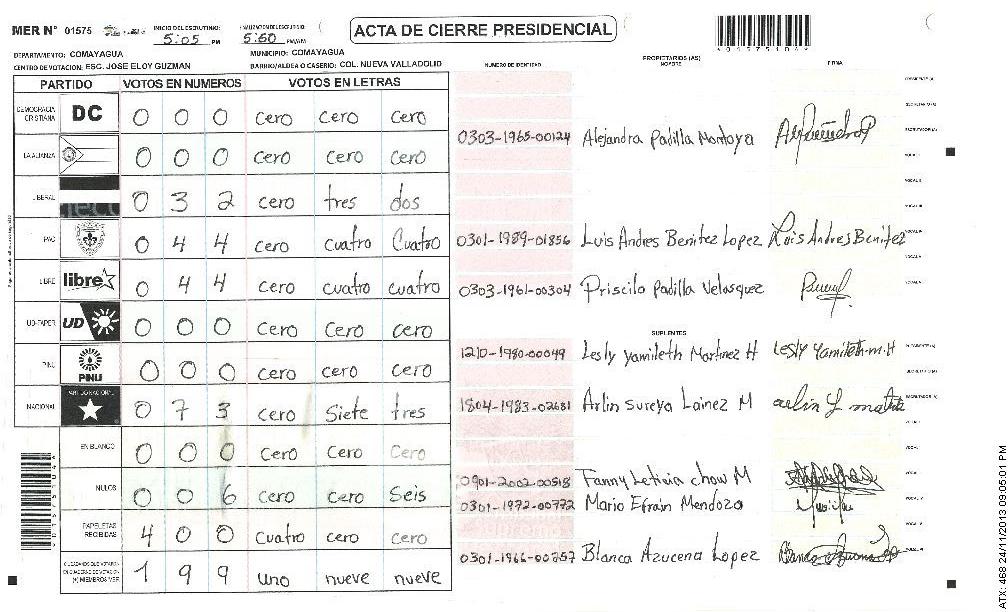 MER N° 01575
INICIO DEL ESCRUTINIO: 5:05 PM
5:60 PM/AM
ACTA DE CIERRE PRESIDENCIAL
DEPARTAMENTO: COMAYAGUA
MUNICIPIO: COMAYAGUA
CENTRO DE VOTACION: ESC. JOSE ELOY GUZMAN
BARRIO/ALDEA O CASERIO: COL. NUEVA VALLADOLID
NUMERO DE IDENTIDAD
PROPIETARIOS (AS)
NOMBRE
FIRMA
PARTIDO VOTOS EN NUMEROS VOTOS EN LETRAS
DEMOCRACIA CRISTIANA DC 0 0 0 cero cero cero
0303-1965-00124 Alejandra Padilla Montoya
LA ALIANZA 0 0 0 cero cero cero
LIBERAL 0 3 2 cero tres dos
PAC 0 4 4 cero cuatro Cuatro
0301-1989-01856 Luis Andres Benitez Lopez Luis Andres Benitez
LIBRE libre 0 4 4 cero cuatro cuatro
0303-1961-00304 Priscila Padilla Velasquez
UD-FAPER UD 0 0 0 cero cero cero
SUPLENTES
PINU PINU 0 0 0 cero cero cero
1210-1980-00049 Lesly Yamileth Martinez H Lesly Yamileth.m.H
NACIONAL PARTIDO NACIONAL 0 7 3 cero Siete tres
1804-1983-02681 Arlin Sureya Lainez M
EN BLANCO 0 0 0 cero cero cero
NULOS 0 0 6 cero cero Seis
0901-2002-00518 Fanny Leticia chow M
0301-1972-00772 Mario Efrain Mendoza
PAPELETAS RECIBIDAS 4 0 0 cuatro cero cero
0301-1966-00757 Blanca Azucena Lopez
CIUDADANOS QUE VOTARON EN CUADERNO DE VOTACION (+) MIEMBROS MER 1 9 9 uno nueve nueve
ATX: 468 24/11/2013 09:05:01 PM